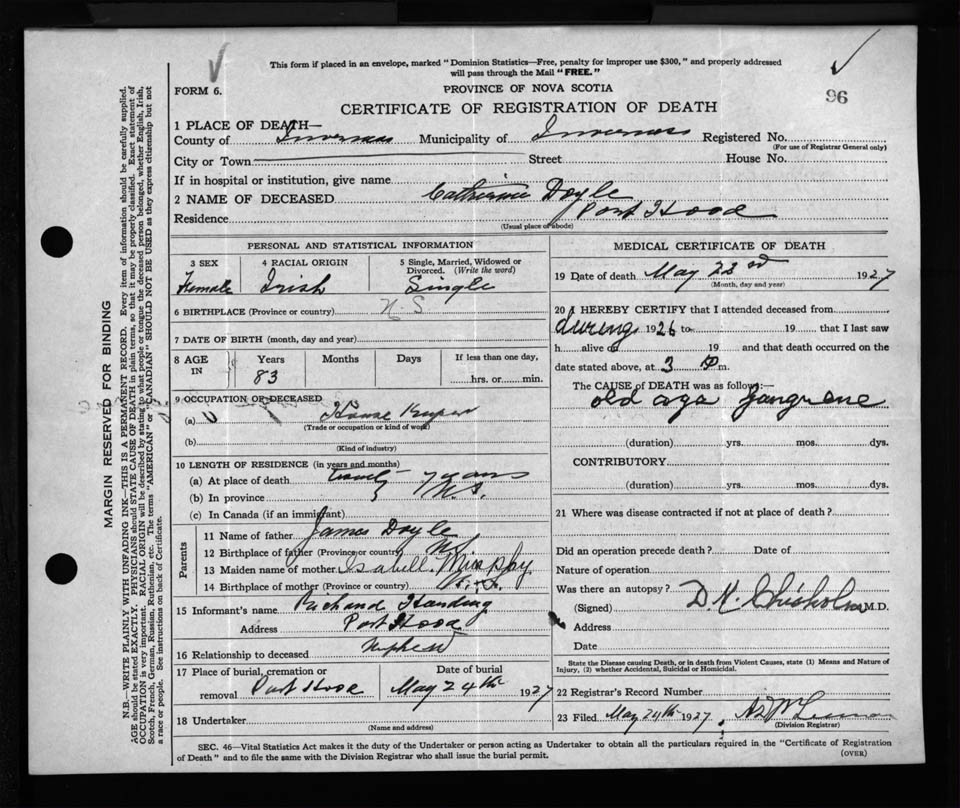 This form if placed in an envelope, marked "Dominion Statistics—Free, penalty for improper use $300," and properly addressed
will pass through the Mail "FREE."
96
FORM 6.
PROVINCE OF NOVA SCOTIA
CERTIFICATE OF REGISTRATION OF DEATH
1 PLACE OF DEATH—
County of Inverness Municipality of Inverness Registered No.
(For use of Registrar General only)
City or Town Street House No.
If in hospital or institution, give name
2 NAME OF DECEASED Catherine Doyle
Residence Port Hood
(Usual place of abode)
PERSONAL AND STATISTICAL INFORMATION
3 SEX 4 RACIAL ORIGIN 5 Single, Married, Widowed or
Divorced. (Write the word)
Female Irish Single
6 BIRTHPLACE (Province or country) N S
7 DATE OF BIRTH (month, day and year)
8 AGE IN Years Months Days If less than one day,
83 hrs. or min.
9 OCCUPATION OF DECEASED
(a) House Keeper
(Trade or occupation or kind of work)
(b)
(Kind of industry)
10 LENGTH OF RESIDENCE (in years and months)
(a) At place of death twenty years
(b) In province N.S.
(c) In Canada (if an immigrant)
Parents
11 Name of father James Doyle
12 Birthplace of father (Province or country)
13 Maiden name of mother Isabell Murphy
14 Birthplace of mother (Province or country)
15 Informant's name Richard Harding
Address Port Hood
16 Relationship to deceased Nephew
17 Place of burial, cremation or Date of burial
removal Port Hood May 24th 1927
18 Undertaker
(Name and address)
MEDICAL CERTIFICATE OF DEATH
19 Date of death May 23rd 1927
(Month, day and year)
20 I HEREBY CERTIFY that I attended deceased from
during 1926 to 19 that I last saw
h alive on 19 and that death occurred on the
date stated above, at 3 P m.
The CAUSE of DEATH was as follows:—
old age gangrene
(duration) yrs. mos. dys.
CONTRIBUTORY
(duration) yrs. mos. dys.
21 Where was disease contracted if not at place of death?
Did an operation precede death? Date of
Nature of operation
Was there an autopsy?
(Signed) D. K. Chisholm M.D.
Address
Date
State the Disease causing Death, or in death from Violent Causes, state (1) Means and Nature of
Injury, (2) whether Accidental, Suicidal or Homicidal.
22 Registrar's Record Number
23 Filed May 24th 1927
(Division Registrar)
SEC. 46—Vital Statistics Act makes it the duty of the Undertaker or person acting as Undertaker to obtain all the particulars required in the "Certificate of Registration
of Death" and to file the same with the Division Registrar who shall issue the burial permit.
(OVER)
MARGIN RESERVED FOR BINDING
N.B.—WRITE PLAINLY WITH UNFADING INK—THIS IS A PERMANENT RECORD. Every item of information should be carefully supplied.
AGE should be stated EXACTLY. PHYSICIANS should STATE CAUSE OF DEATH in plain terms, so that it may be properly classified. Exact statement of
OCCUPATION is very important. RACIAL ORIGIN will be described by stating to what people or tongue the deceased person belonged, whether English, Irish,
Scotch, French, German, Russian, Ruthenian, etc. The terms "AMERICAN" or "CANADIAN" SHOULD NOT BE USED as they express citizenship but not
a race or people. See instructions on back of Certificate.